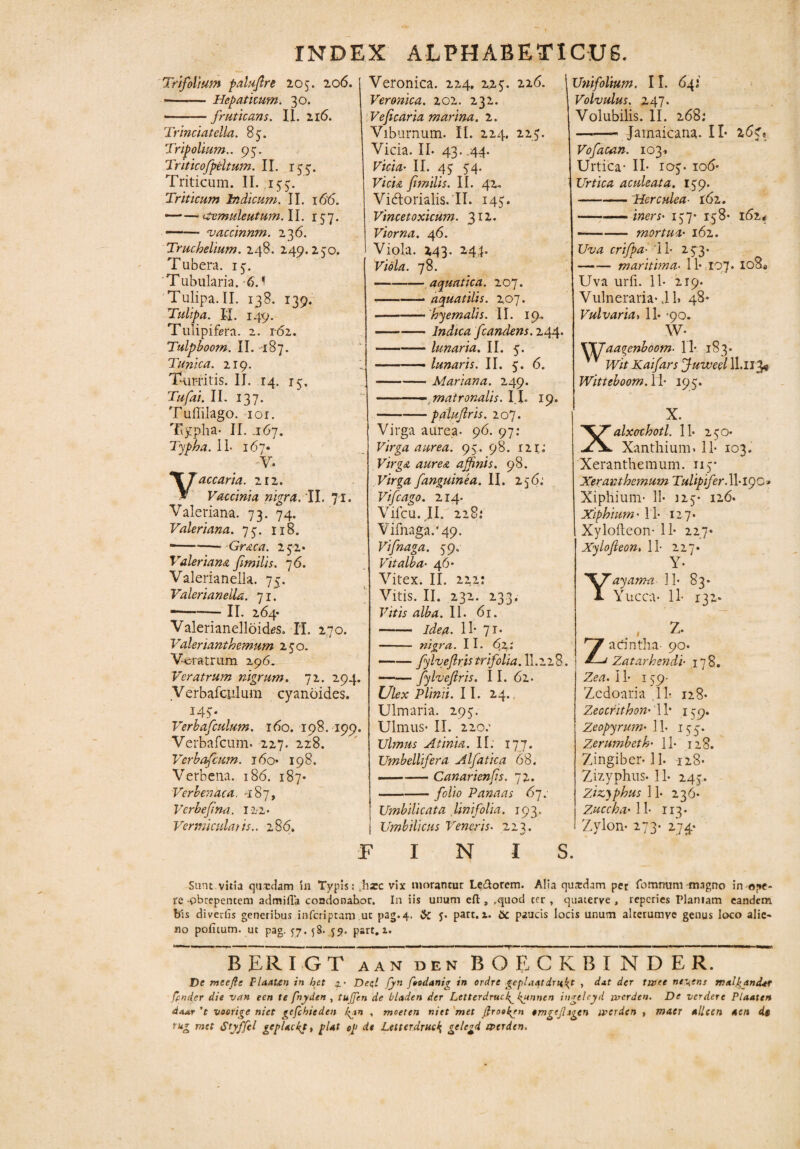 INDEX ALPHABETICUS.
Trifolium palustre 205. 206.
——— Hepaticum. 30.
——— fruticans. II. 216.
Trinciatella. 85.
Tripolium.. 95.
Triticospeltum. II. 155.
Triticum. II. 155.
Triticum Indicum. II. 166.
——— temuleutum. II. 157.
——— vaccinnm. 236.
Truchelium. 248. 249. 250.
Tubera. 15.
Tubularia. 6.
Tulipa. II. 138. 139.
Tulipa. II. 149.
Tulipifera. 2. 162.
Tulpboom. II. 187.
Tunica. 219.
Turritis. II. 14. 15.
Tufai. II. 137.
Tussilago. 101.
Typha. II. 167.
Typha. II. 167.
V.
Vaccaria. 212.
Vaccinia nigra. II. 71.
Valeriana. 73. 74.
Valeriana. 75. 118.
——— Græca. 252.
Valerianæ similis. 76.
Valerianella. 75.
Valerianella. 71.
——— II. 264.
Valerianellöides. II. 270.
Valerianthemum 250.
Veratrum 296.
Veratrum nigrum. 72. 294.
Verbasculum cyanöides.
145.
Verbasculum. 160. 198. 199.
Verbascum. 227. 228.
Verbascum. 160. 198.
Verbena. 186. 187.
Verbenaca. 187,
Verbesina. 122.
Vermicularis.. 286.
Veronica. 224. 225. 226.
Veronica. 202. 232.
Vesicaria marina. 2.
Viburnum. II. 224. 225.
Vicia. II. 43. 44.
Vicia. II. 45 54.
Viciæ similis. II. 42.
Victorialis. II. 145.
Vincetoxicum. 312.
Viorna. 46.
Viola. 243. 244.
Viola. 78.
——— aquatica. 207.
——— aquatilis. 207.
——— hyemalis. II. 19.
——— Indica scandens. 244.
——— lunaria. II. 5.
——— lunaris. II. 5. 6.
——— Mariana. 249.
——— matronalis. II. 19.
——— palustris. 207.
Virga aurea. 96. 97:
Virga aurea. 95. 98. 121:
Virgæ aureæ affinis. 98.
Virga sanguinea. II. 256:
Viscago. 214.
Viscu. II. 228:
Visnaga. 49.
Visnaga. 59.
Vitalba. 46.
Vitex. II. 222:
Vitis. II. 232. 233.
Vitis alba. II. 61.
——— Idea. II. 71.
——— nigra. II. 62:
——— sylvestris trifolia. II. 228.
——— sylvestris. II. 62.
Ulex Plinii. II. 24.
Ulmaria. 295.
Ulmus. II. 220.
Ulmus Atinia. II. 177.
Umbellifera Alsatica 68.
——— Canariensis. 72.
——— folio Panaas 67.
Umbilicata linifolia. 193.
Umbilicus Veneris. 223.
Unifolium. II. 64:
Volvulus. 247.
Volubilis. II. 268:
——— Jamaicana. II. 265.
Vosacan. 103.
Urtica. II. 105. 106.
Urtica aculeata. 159.
——— Herculea. 162.
——— iners. 157. 158. 162.
——— mortua. 162.
Uva crispa. II. 253.
——— maritima. II. 107. 108.
Uva ursi. II. 219.
Vulneraria. II. 48.
Vulvaria. II. 90.
W.
Waagenboom. II. 183.
Wit Kaisars Juweel II. 113.
Witteboom. II. 195.
X.
Xalxochotl. II. 250.
Xanthium. II. 103.
Xeranthemum. 115.
Xeranthemum Tulipifer. II. 190.
Xiphium. II. 125. 126.
Xiphium. II. 127.
Xylosteon. II. 227.
Xylosteon. II. 227.
Y.
Yayama II. 83.
Yucca. II. 132.
Z.
Zacintha. 90.
Zatarhendi. 178.
Zea. II. 159.
Zedoaria II. 128.
Zeocrithon. II. 159.
Zeopyrum. II. 155.
Zerumbeth. II. 128.
Zingiber. II. 128.
Zizyphus. II. 245.
Zizyphus II. 236.
Zuccha. II. 113.
Zylon. 273. 274.
FINIS.
Sunt vitia quædam in Typis: hæc vix morantur Lectorem. Alia quædam per somnum magno in ope-
re obrepentem admissa condonabor. In iis unum est, quod ter, quaterve, reperies Plantam eandem
bis diversis generibus inscriptam ut pag. 4. & 5. part. 2. & paucis locis unum alterumve genus loco alie-
no positum. ut pag. 57. 58. 59. part. 2.
BERIGT AAN DEN BOECKBINDER.
De meeste Plaaten in het 2. Deel syn soodanig in ordre geplaatdrukt, dat der twee nevens malkander
sonder die van een te snyden, tussen de bladen der Letterdruck kunnen ingeleyd werden. De verdere Plaaten
daar 't voorige niet geschieden kan, moeten niet met strooken omgeslagen werden, maer alleen aen de
rug met Styffel geplackt, plat op de Letterdruck gelegd werden.